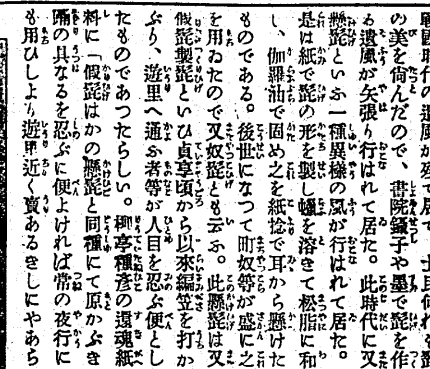 戰國時代の遺風が殘て居て、士民何れも髭
の美を尙んだので、書院鑷子や墨で髭を作
る遺風が矢張り行はれて居た。此時代に又
懸髭といふ一種異樣の風が行はれて居た。
是は紙で髭の形を製し蠟を溶きて松脂に和
し、伽羅油で固め之を紙捻で耳から懸けた
ものである。後世になつて町奴等が盛に之
を用ゐたので又奴髭とも云ふ。此懸髭は又
假髭製髭といひ貞享頃から以來編笠を打か
ぶり、遊里へ通ふ者等が人目を忍ぶ便とし
たものであつたらしい。柳亭種彥の還魂紙
料に「假髭はかの懸髭と同種にて原かぶき
踊の具なるを忍ぶに便よければ常の夜行に
も用ひしより遊里近く賣あるきしにやあら